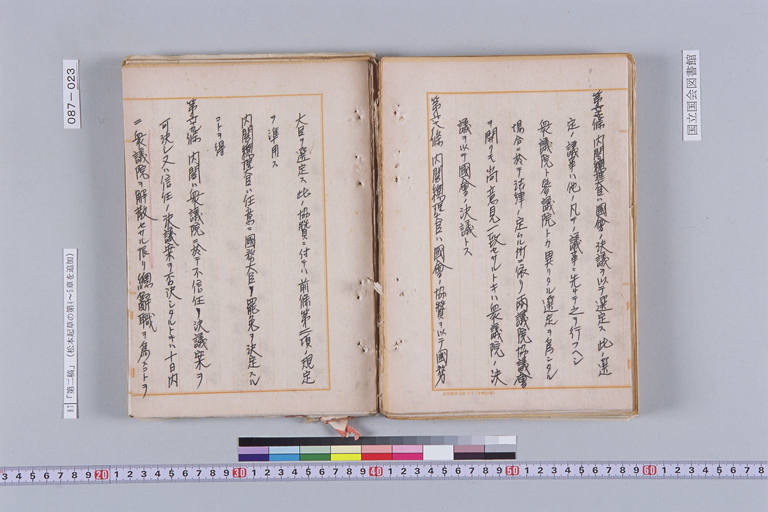 国立国会図書館
第六十三條 内閣總理大臣ハ國會ノ決議ヲ以テ選定ス此ノ選
定ノ議事ハ他ノ凡テノ議事ニ先チテ之ヲ行フヘシ
衆議院ト參議院トカ異リタル選定ヲ為シタル
場合ニ於テ法律ノ定ムル所ニ依リ兩議院協議會
ヲ開クモ尚意見一致セサルトキハ衆議院ノ決
議ヲ以テ國會ノ決議トス
條 内閣總理大臣ハ國會ノ協賛ヲ以テ國務
大臣ヲ選定ス此ノ協賛ニ付テハ前條第二項ノ規定
ヲ準用ス
内閣總理大臣ハ任意ニ國務大臣ヲ罷免ヲ決定スル
コトヲ得
條 内閣ハ衆議院ニ於テ不信任ノ決議案ヲ
可決シ又ハ信任ノ決議案ヲ否決シタルトキハ十日内
ニ衆議院ヲ解散セサル限リ總辭職ヲ為スコトヲ
087-023
87「第二稿」(松本起草の第4~5章を追加)
3 4 5 6 7 8 9 20 1 2 3 4 5 6 7 8 9 30 1 2 3 4 5 6 7 8 9 40 1 2 3 4 5 6 7 8 9 50 1 2 3 4 5 6 7 8 9 60 1 2 3 4 5 6 7 8